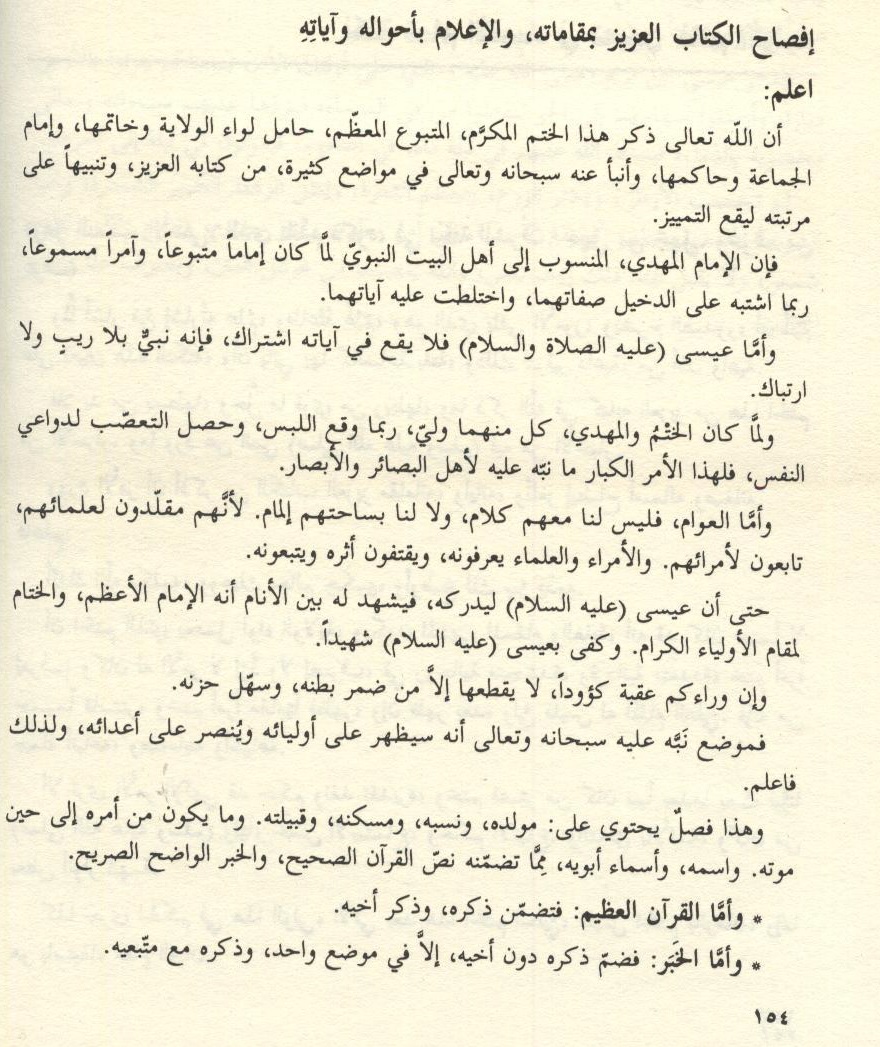 إفصاح الكتاب العزيز بمقاماته، والإعلام بأحواله وآياتِهِ
اعلم:
أن اللّه تعالى ذكر هذا الختم المكرَّم، المتبوع المعظّم، حامل لواء الولاية وخاتمها، وإمام
الجماعة وحاكمها، وأنبأ عنه سبحانه وتعالى في مواضع كثيرة، من كتابه العزيز، وتنبيهاً على
مرتبته ليقع التمييز.
فإن الإمام المهدي، المنسوب إلى أهل البيت النبويّ لمَّا كان إماماً متبوعاً، وآمراً مسموعاً،
ربما اشتبه على الدخيل صفاتهما، واختلطت عليه آياتهما.
وأمَّا عيسى (عليه الصلاة والسلام) فلا يقع في آياته اشتراك، فإنه نبيٌّ بلا ريبٍ ولا
ارتباك.
ولمَّا كان الخَتْمُ والمهدي، كل منهما وليّ، ربما وقع اللبس، وحصل التعصّب لدواعي
النفس، فلهذا الأمر الكبار ما نبّه عليه لأهل البصائر والأبصار.
وأمَّا العوام، فليس لنا معهم كلام، ولا لنا بساحتهم إلمام. لأنَّهم مقلّدون لعلمائهم،
تابعون لأمرائهم. والأمراء والعلماء يعرفونه، ويقتفون أثره ويتبعونه.
حتى أن عيسى (عليه السلام) ليدركه، فيشهد له بين الأنام أنه الإمام الأعظم، والختام
لمقام الأولياء الكرام. وكفى بعيسى (عليه السلام) شهيداً.
وإن وراءكم عقبة كؤوداً، لا يقطعها إلاَّ من ضمر بطنه، وسهّل حزنه.
فموضع نَبَّه عليه سبحانه وتعالى أنه سيظهر على أوليائه ويُنصر على أعدائه، ولذلك
فاعلم.
وهذا فصلٌ يحتوي على: مولده، ونسبه، ومسكنه، وقبيلته. وما يكون من أمره إلى حين
موته. واسمه، وأسماء أبويه، مِمَّا تضمّنه نصّ القرآن الصحيح، والخبر الواضح الصريح.
* وأمَّا القرآن العظيم: فتضمّن ذكره، وذكر أخيه.
* وأمَّا الخَبَر: فضمّ ذكره دون أخيه، إلاَّ في موضع واحد، وذكره مع متّبعيه.
١٥٤